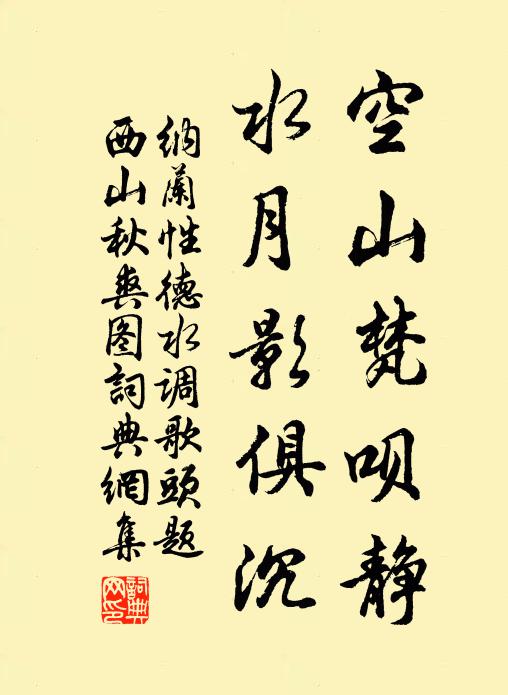 空山梵呗静
水月影俱沉
纳兰性德水调歌头题
西山秋爽图词典網集
詞典
网印